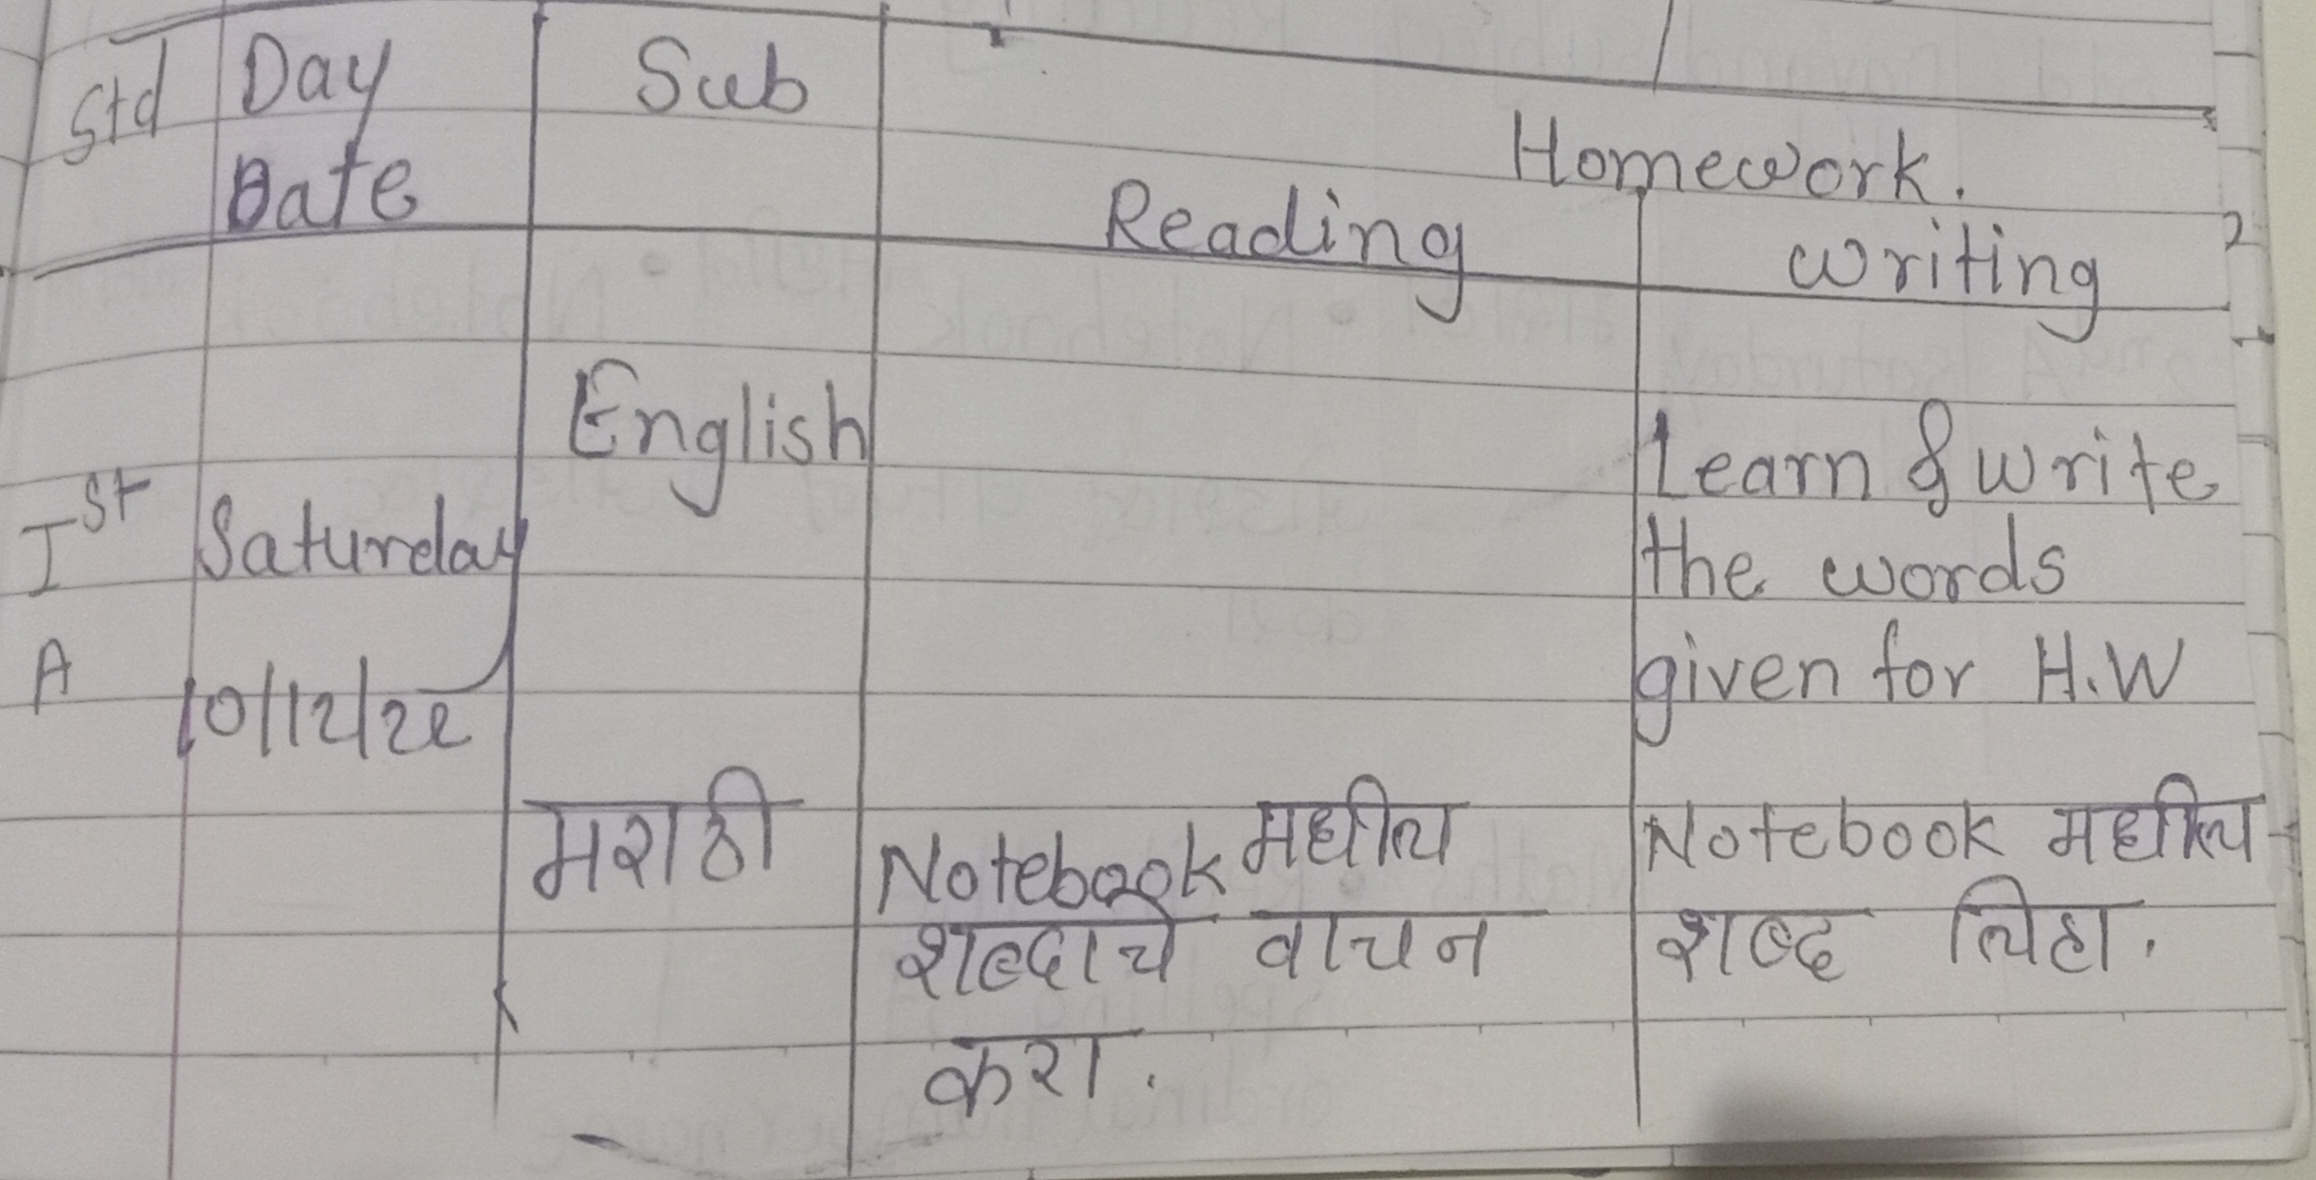 Std Day Sub Homework.
Date Reading writing
English Learn & write
Ist Saturday the words
A 10/12/22 given for H.W
मराठी Notebook मधील Notebook मधील
शब्दाचे वाचन शब्द लिहा.
करा.